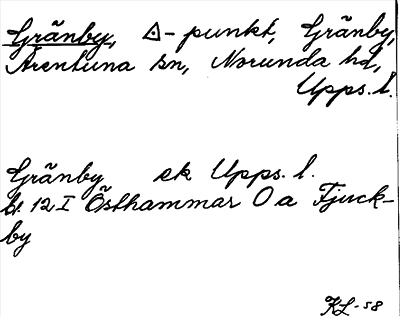 Gränby, △-punkt, Gränby,
Ärentuna sn, Norunda hd,
Upps. l.
Gränby ek Upps. l.
bl. 12 I Östhammar O a Fjuck-
by
KL-58